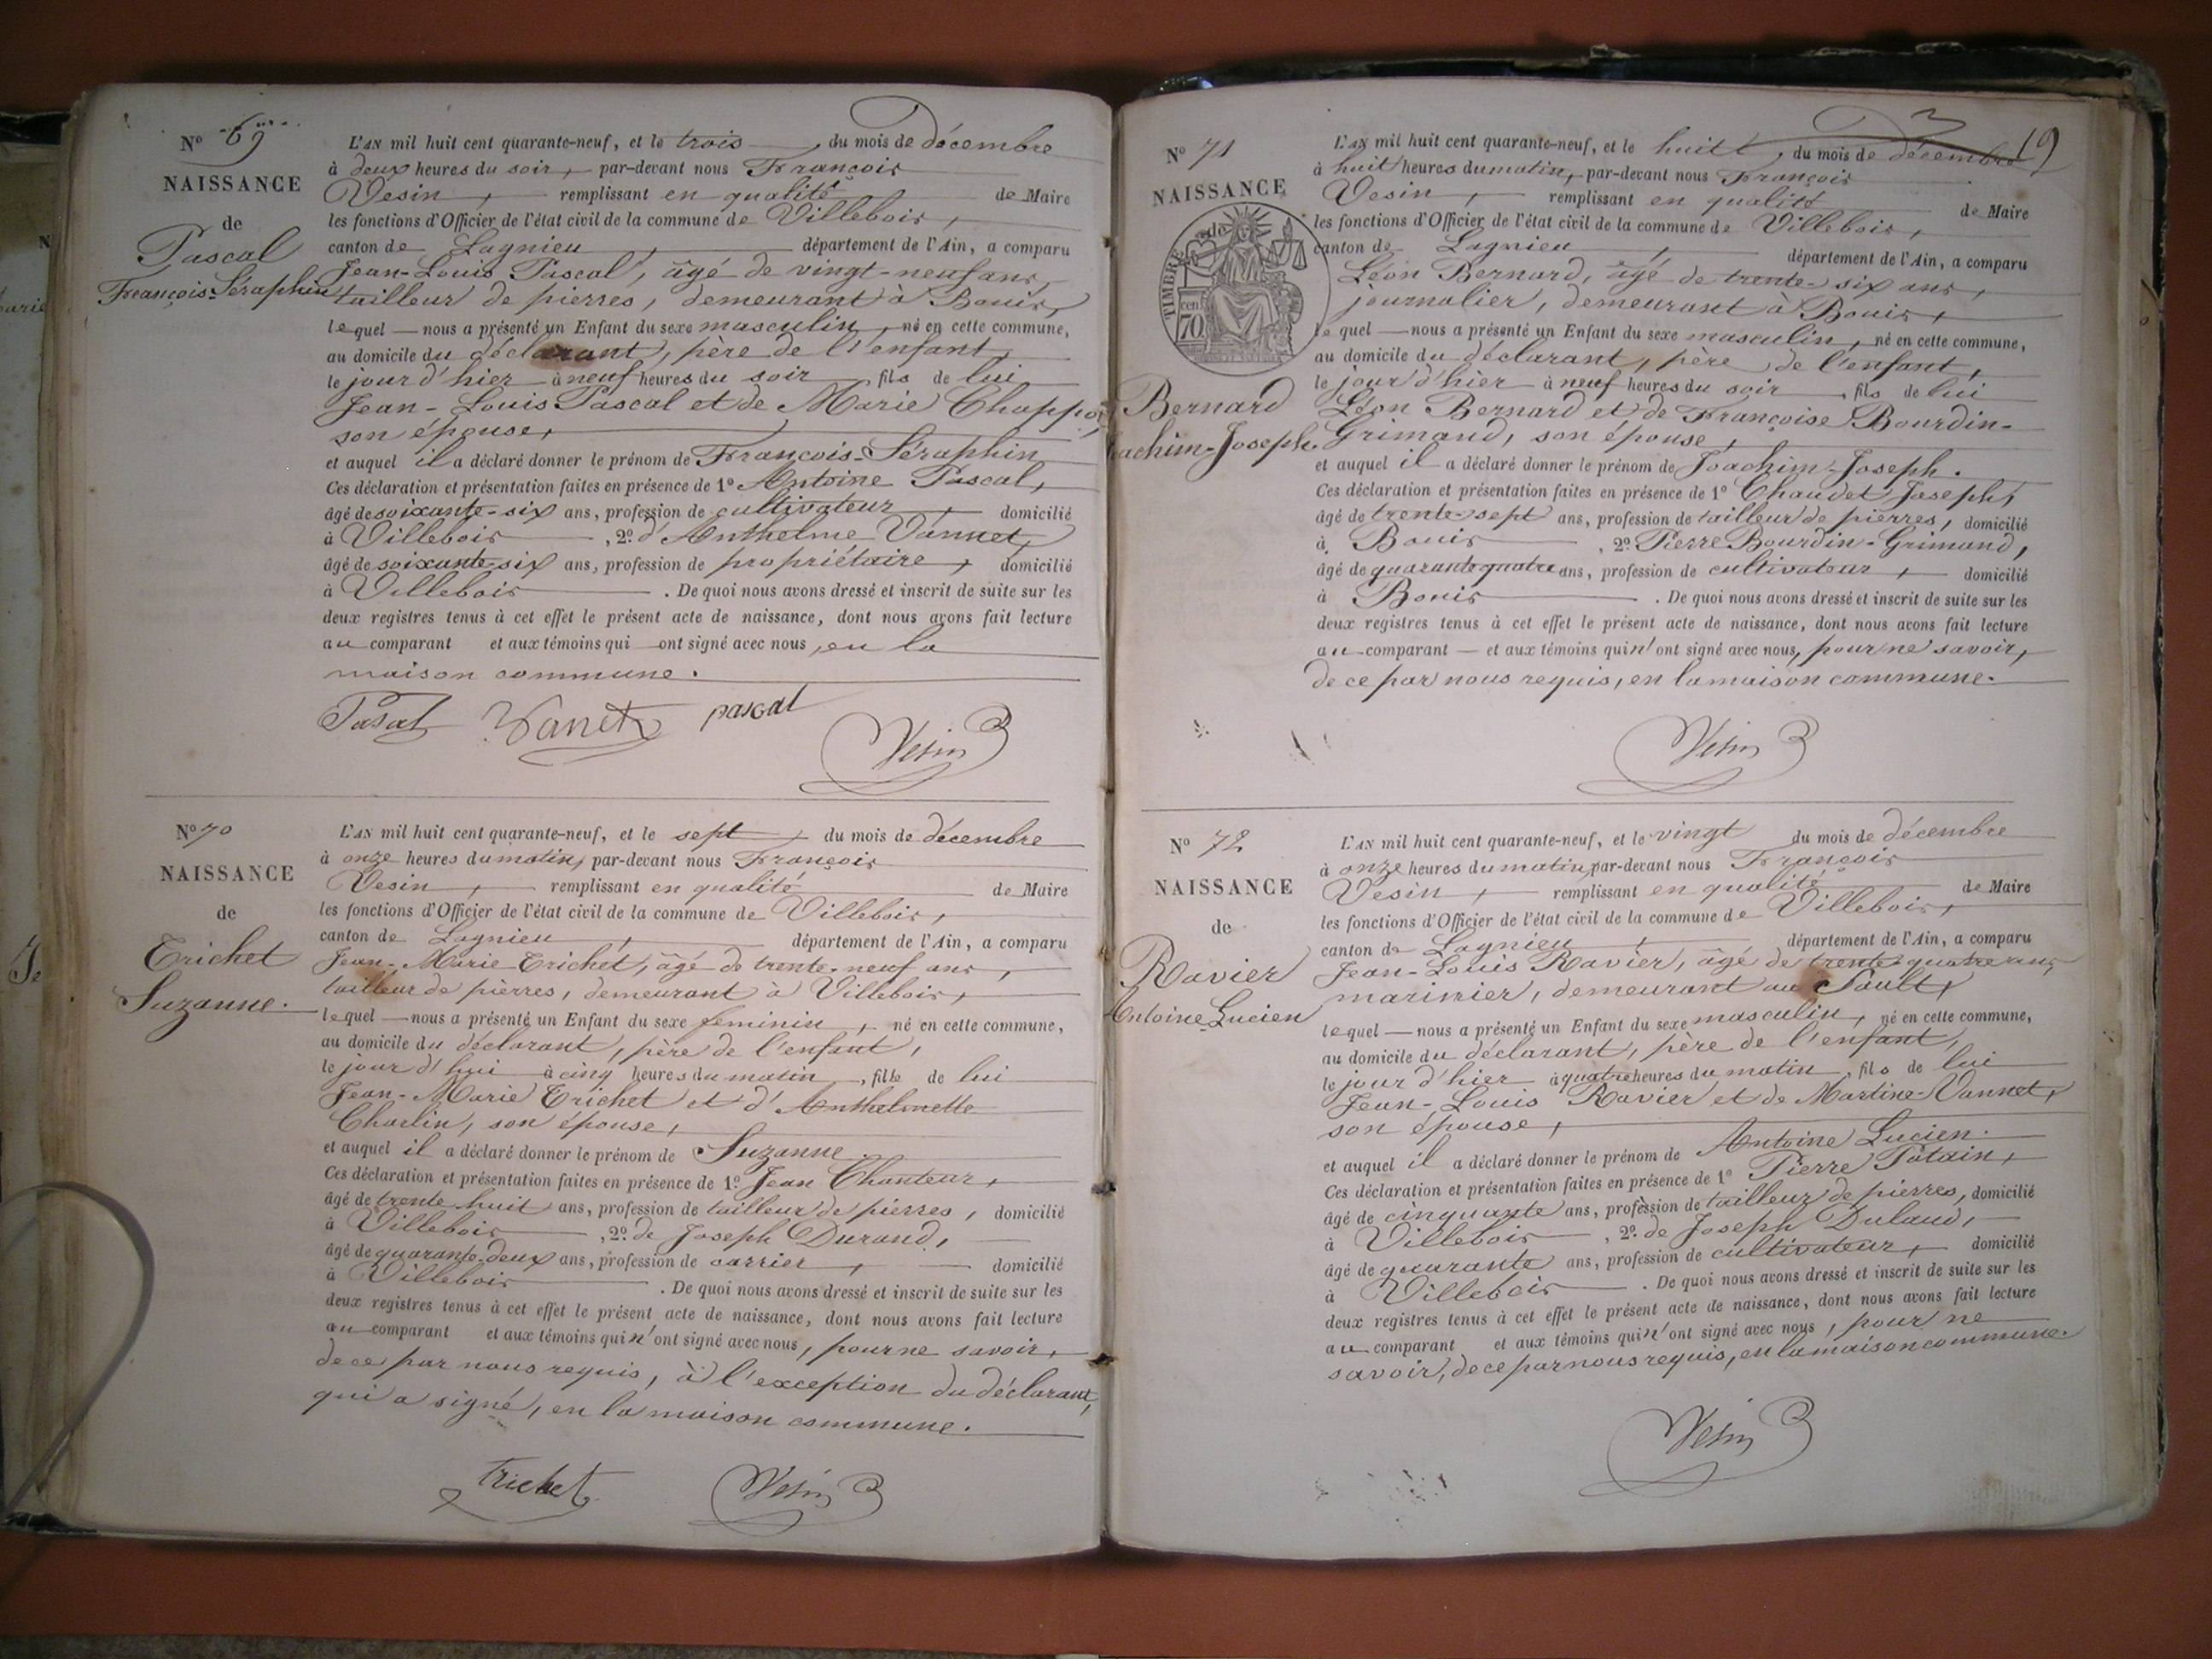 Nº 69
NAISSANCE
de
Pascal
François-Séraphin
L'AN mil huit cent quarante-neuf, et le trois, du mois de décembre
à deux heures du soir, par-devant nous François
Vésin, remplissant en qualité de Maire
les fonctions d'Officier de l'état civil de la commune de Villebois,
canton de Lagnieu, département de l'Ain, a comparu
Jean-Louis Pascal, âgé de vingt-neuf ans,
tailleur de pierres, demeurant à Bouis,
lequel nous a présenté un Enfant du sexe masculin, né en cette commune,
au domicile du déclarant, père de l'enfant,
le jour d'hier à neuf heures du soir, fils de lui
Jean-Louis Pascal et de Marie
son épouse,
et auquel il a déclaré donner le prénom de François-Séraphin
Ces déclaration et présentation faites en présence de 1º Antoine Pascal,
âgé de soixante-six ans, profession de cultivateur, domicilié
à Villebois, 2º d'Anthelme Vannet,
âgé de soixante-six ans, profession de propriétaire, domicilié
à Villebois. De quoi nous avons dressé et inscrit de suite sur les
deux registres tenus à cet effet le présent acte de naissance, dont nous avons fait lecture
au comparant et aux témoins qui ont signé avec nous, en la
maison commune.
Pascal Vanet pascal
Vésin
Nº 70
NAISSANCE
de
Trichet
Suzanne.
L'AN mil huit cent quarante-neuf, et le sept, du mois de décembre
à onze heures du matin, par-devant nous François
Vesin, remplissant en qualité de Maire
les fonctions d'Officier de l'état civil de la commune de Villebois,
canton de Lagnieu, département de l'Ain, a comparu
Jean-Marie Trichet, âgé de trente-neuf ans,
tailleur de pierres, demeurant à Villebois,
lequel nous a présenté un Enfant du sexe feminin, né en cette commune,
au domicile du déclarant, père de l'enfant,
le jour d'hui à cinq heures du matin, fille de lui
Jean-Marie Trichet et d'Anthelmette
Charlin, son épouse,
et auquel il a déclaré donner le prénom de Suzanne.
Ces déclaration et présentation faites en présence de 1º Jean Chanteur,
âgé de trente-huit ans, profession de tailleur de pierres, domicilié
à Villebois, 2º de Joseph Durand,
âgé de quarante-deux ans, profession de carrier, domicilié
à Villebois. De quoi nous avons dressé et inscrit de suite sur les
deux registres tenus à cet effet le présent acte de naissance, dont nous avons fait lecture
au comparant et aux témoins qui n'ont signé avec nous, pour ne savoir,
de ce par nous requis, à l'exception du déclarant,
qui a signé, en la maison commune.
trichet Vésin
19
Nº 71
NAISSANCE
de
TIMBRE
cen
70
Bernard
Joachim-Joseph.
L'AN mil huit cent quarante-neuf, et le huit, du mois de décembre
à huit heures du matin, par-devant nous François
Vesin, remplissant en qualité de Maire
les fonctions d'Officier de l'état civil de la commune de Villebois,
canton de Lagnieu, département de l'Ain, a comparu
Léon Bernard, âgé de trente-six ans,
journalier, demeurant à Bouis,
lequel nous a présenté un Enfant du sexe masculin, né en cette commune,
au domicile du déclarant, père de l'enfant,
le jour d'hier à neuf heures du soir, fils de lui
Léon Bernard et de Françoise Bourdin-
Grimaud, son épouse,
et auquel il a déclaré donner le prénom de Joachim-Joseph.
Ces déclaration et présentation faites en présence de 1º Chaudet Joseph,
âgé de trente-sept ans, profession de tailleur de pierres, domicilié
à Bouis, 2º Pierre Bourdin-Grimaud,
âgé de quarante quatre ans, profession de cultivateur, domicilié
à Bouis. De quoi nous avons dressé et inscrit de suite sur les
deux registres tenus à cet effet le présent acte de naissance, dont nous avons fait lecture
au comparant et aux témoins qui n'ont signé avec nous, pour ne savoir,
de ce par nous requis, en la maison commune.
Vésin
Nº 72
NAISSANCE
de
Ravier
Antoine Lucien
L'AN mil huit cent quarante-neuf, et le vingt du mois de décembre
à onze heures du matin, par-devant nous François
Vésin, remplissant en qualité de Maire
les fonctions d'Officier de l'état civil de la commune de Villebois,
canton de Lagnieu, département de l'Ain, a comparu
Jean-Louis Ravier, âgé de trente-quatre ans,
marinier, demeurant au Sault,
lequel nous a présenté un Enfant du sexe masculin, né en cette commune,
au domicile du déclarant, père de l'enfant,
le jour d'hier à quatre heures du matin, fils de lui
Jean-Louis Ravier et de Martine Vannet,
son épouse,
et auquel il a déclaré donner le prénom de Antoine Lucien.
Ces déclaration et présentation faites en présence de 1º Pierre Patain,
âgé de cinquante ans, profession de tailleur de pierres, domicilié
à Villebois, 2º de Joseph Dulaud,
âgé de quarante ans, profession de cultivateur, domicilié
à Villebois. De quoi nous avons dressé et inscrit de suite sur les
deux registres tenus à cet effet le présent acte de naissance, dont nous avons fait lecture
au comparant et aux témoins qui n'ont signé avec nous, pour ne
savoir, de ce par nous requis, en la maison commune.
Vésin